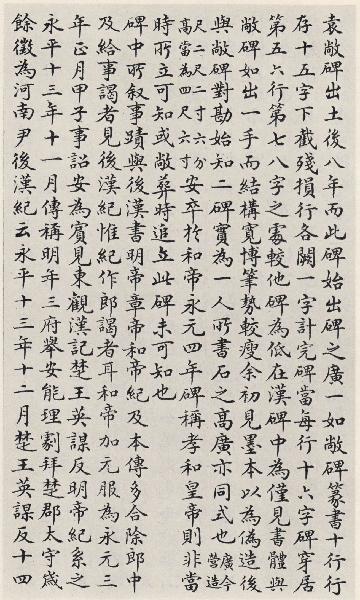 袁敞碑出土後八年而此碑始出碑之廣一如敞碑篆書十行行
存十五字下截殘損行各闕一字計完碑當每行十六字碑穿居
第五六行第七八字之處較他碑為低在漢碑中為僅見書體與
敞碑如出一手而結構寬博筆勢較瘦余初見墨本以為偽造後
與敞碑對勘始知二碑實為一人所書石之高廣亦同式也廣今營造
尺二尺二寸六分高當為四尺六寸安卒於和帝永元四年碑稱孝和皇帝則非當
時所立可知或敞葬時追立此碑未可知也
碑中所叙事蹟與後漢書明帝章帝和帝紀及本傳多合除郎中
及給事謁者見後漢紀惟紀作郎謁者耳和帝加元服為永元三
年正月甲子事詔安為賓見東觀漢記楚王英謀反明帝紀系之
永平十三年十一月傳稱明年三府舉安能理劇拜楚郡太守歲
餘徵為河南尹後漢紀云永平十三年十二月楚王英謀反十四